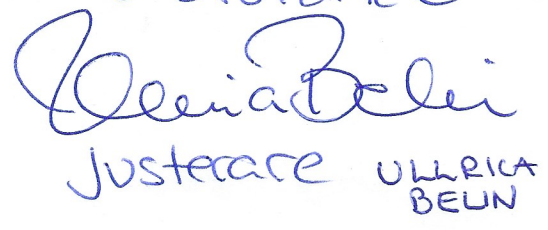 Ullrica Belin
justerare ULLRICA
BELIN